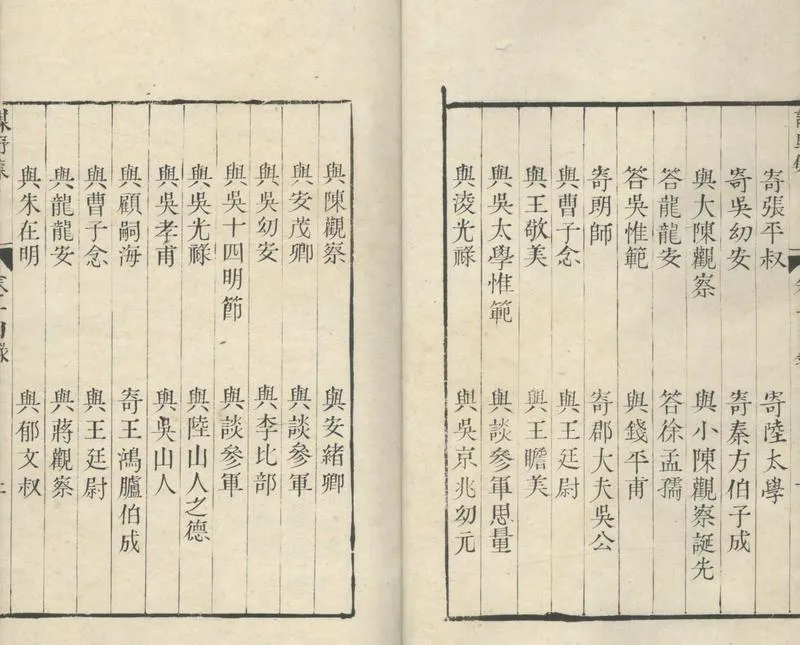 寄張平叔 寄陸太學
寄吳幼安 寄秦方伯子成
與大陳觀察 與小陳觀察誕先
答龍龍安 答徐孟孺
答吳惟範 與錢平甫
寄玥師 寄郡大夫吳公
與曹子念 與王廷尉
與王敬美 與王瞻美
與吳太學惟範 與談參軍思量
與淩光祿 與吳京兆幼元
與陳觀察 與安緒卿
與安茂卿 與談參軍
與吳幼安 與李比部
與吳十四明節 與談參軍
與吳光祿 與陸山人之德
與吳孝甫 與吳山人
與顧嗣海 寄王鴻臚伯成
與曹子念 與王廷尉
與龍龍安 與蔣觀察
與朱在明 與郁文叔